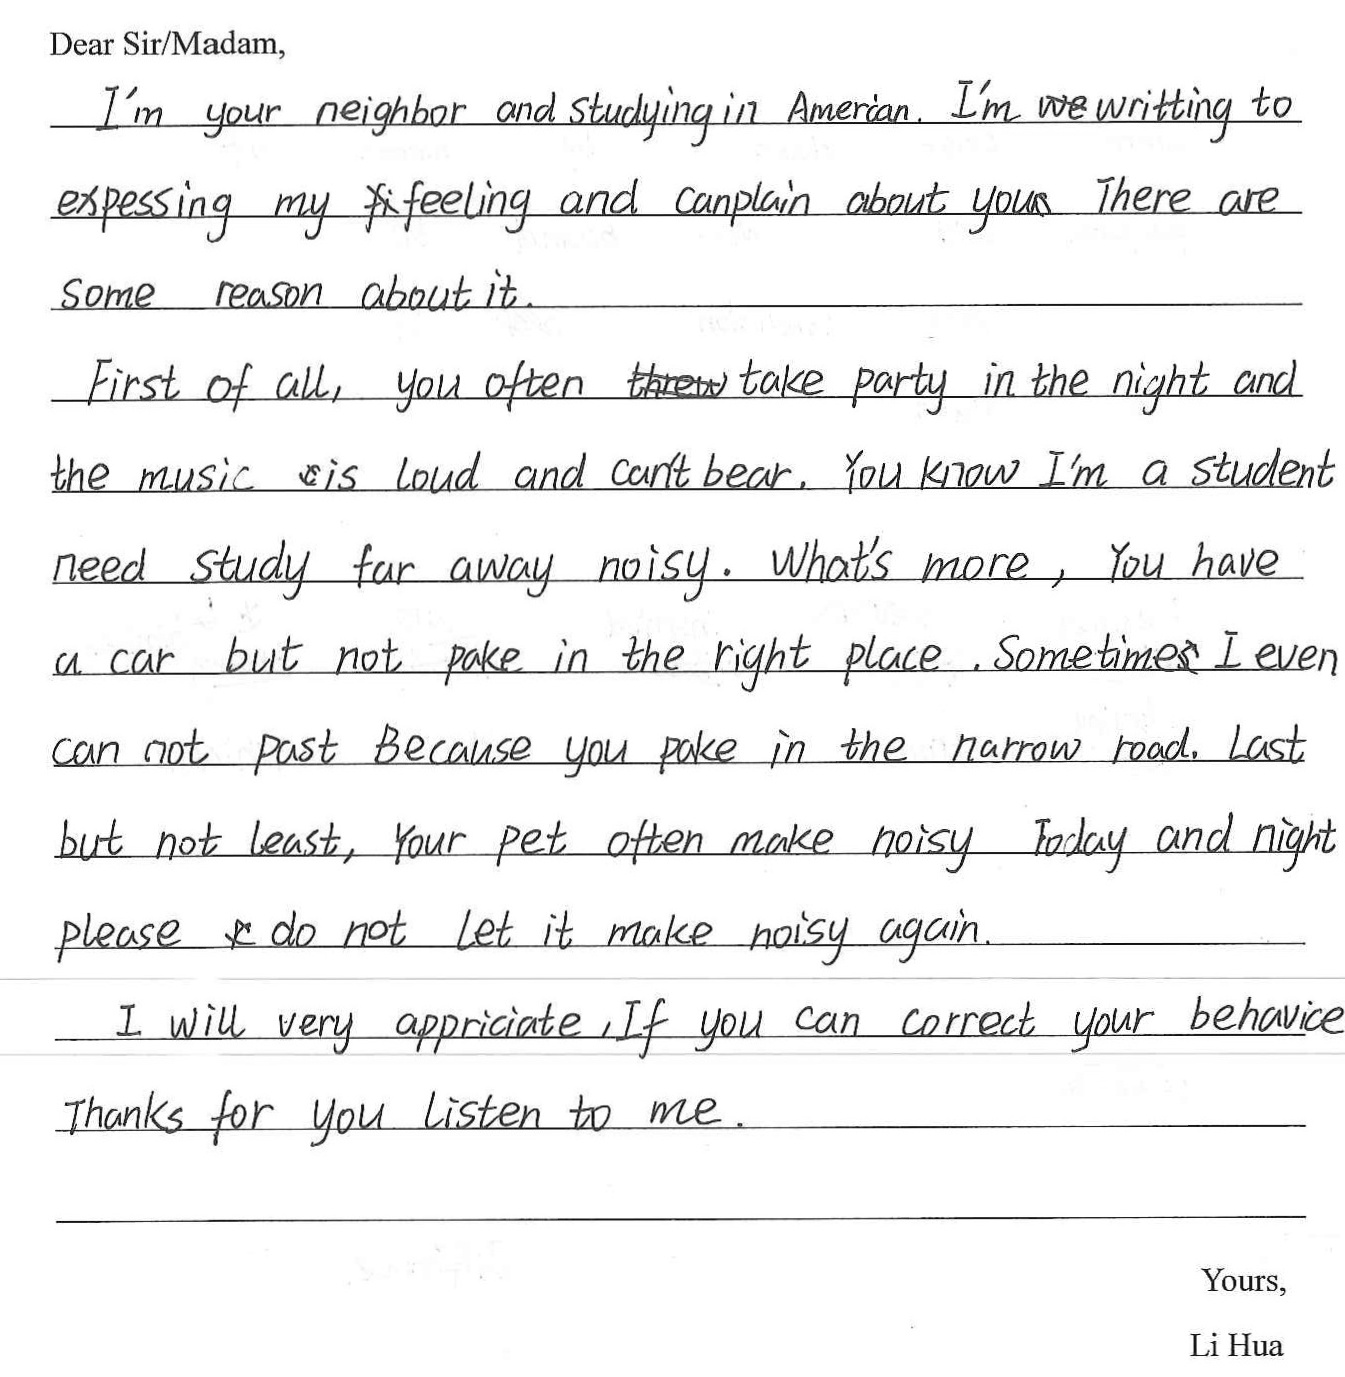 Dear Sir/Madam,
I'm your neighbor and studying in Amerian. I'm writting to
expessing my feeling and canplain about yours There are
some reason about it.
First of all, you often take party in the night and
the music is loud and can't bear. You know I'm a student
need study far away noisy. What's more, You have
a car but not pake in the right place. Sometimes I even
can not past Because you pake in the narrow road. Last
but not least, Your pet often make noisy Today and night
please do not let it make noisy again.
I will very appriciate, If you can correct your behavice
Thanks for you listen to me.
Yours,
Li Hua